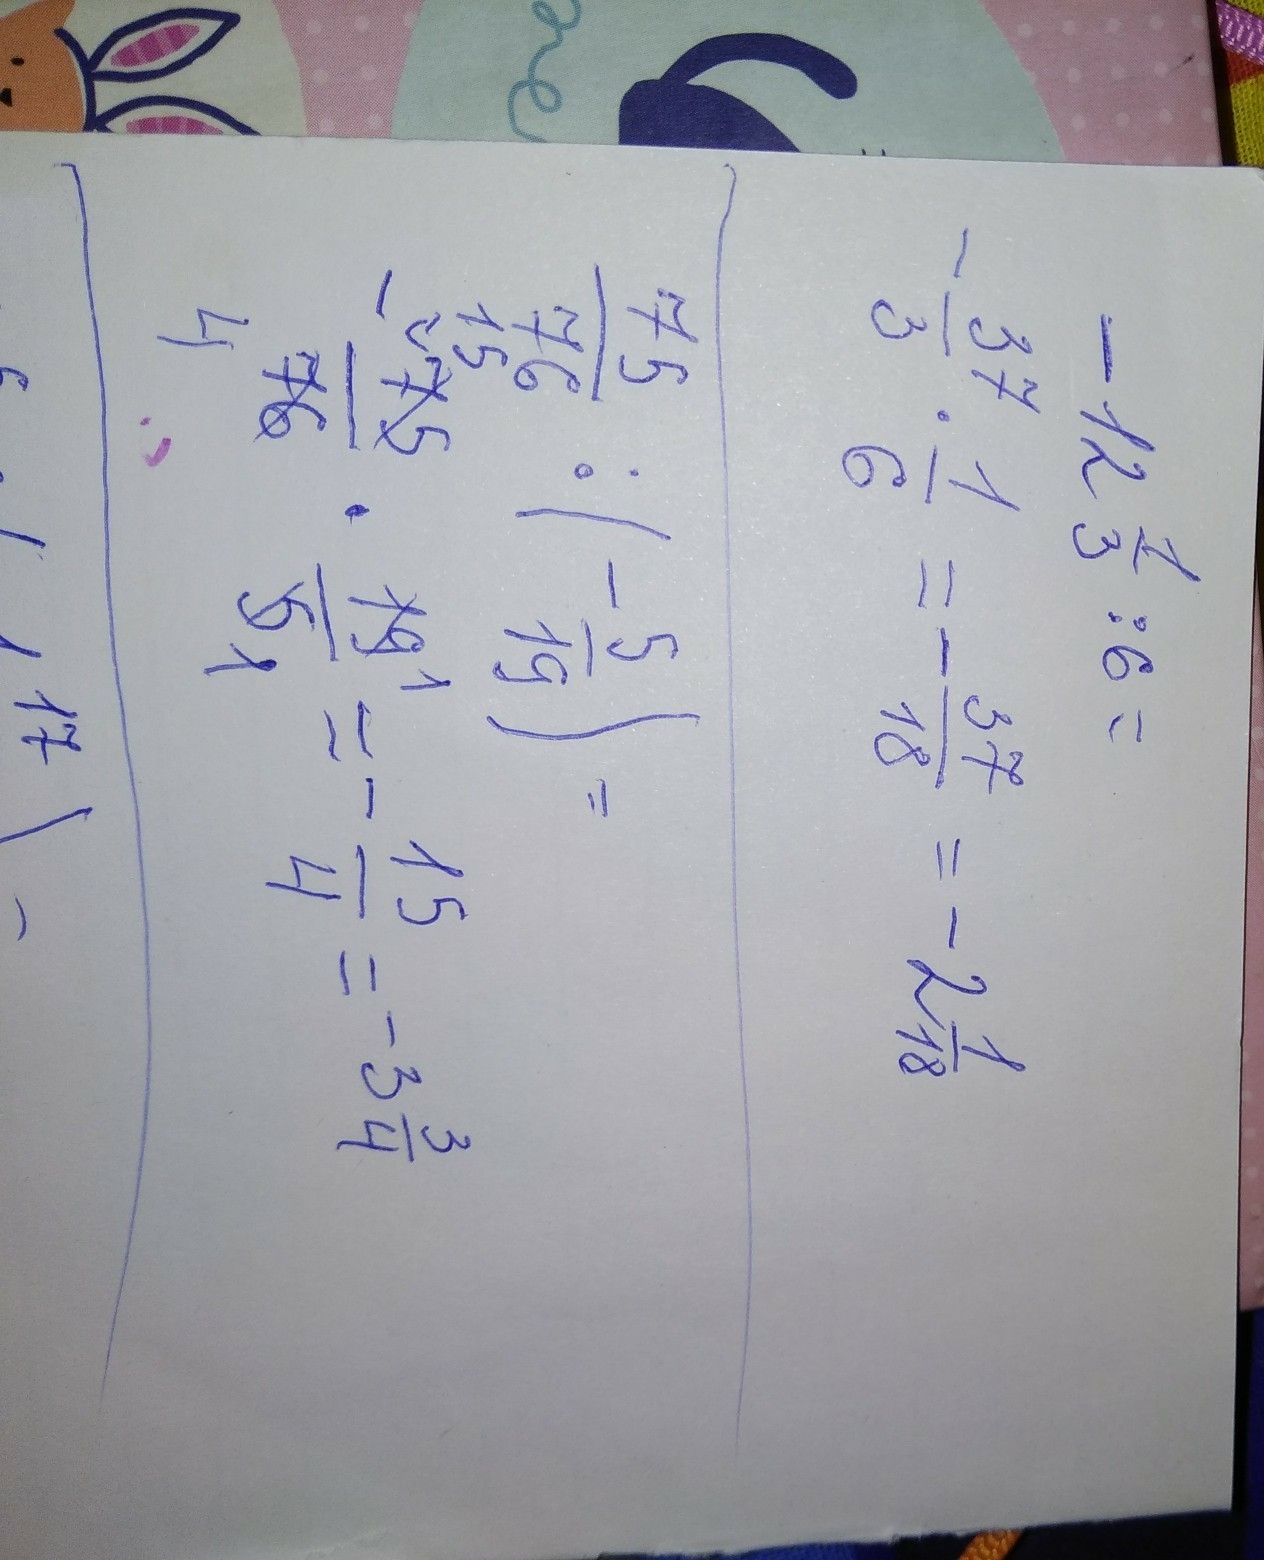 -12 1/3 : 6 =
-37/3 · 1/6 = -37/18 = -2 1/18
75/76 : (-5/19) =
15 1
-75/76 · 19/5 = -15/4 = -3 3/4
4 1
17